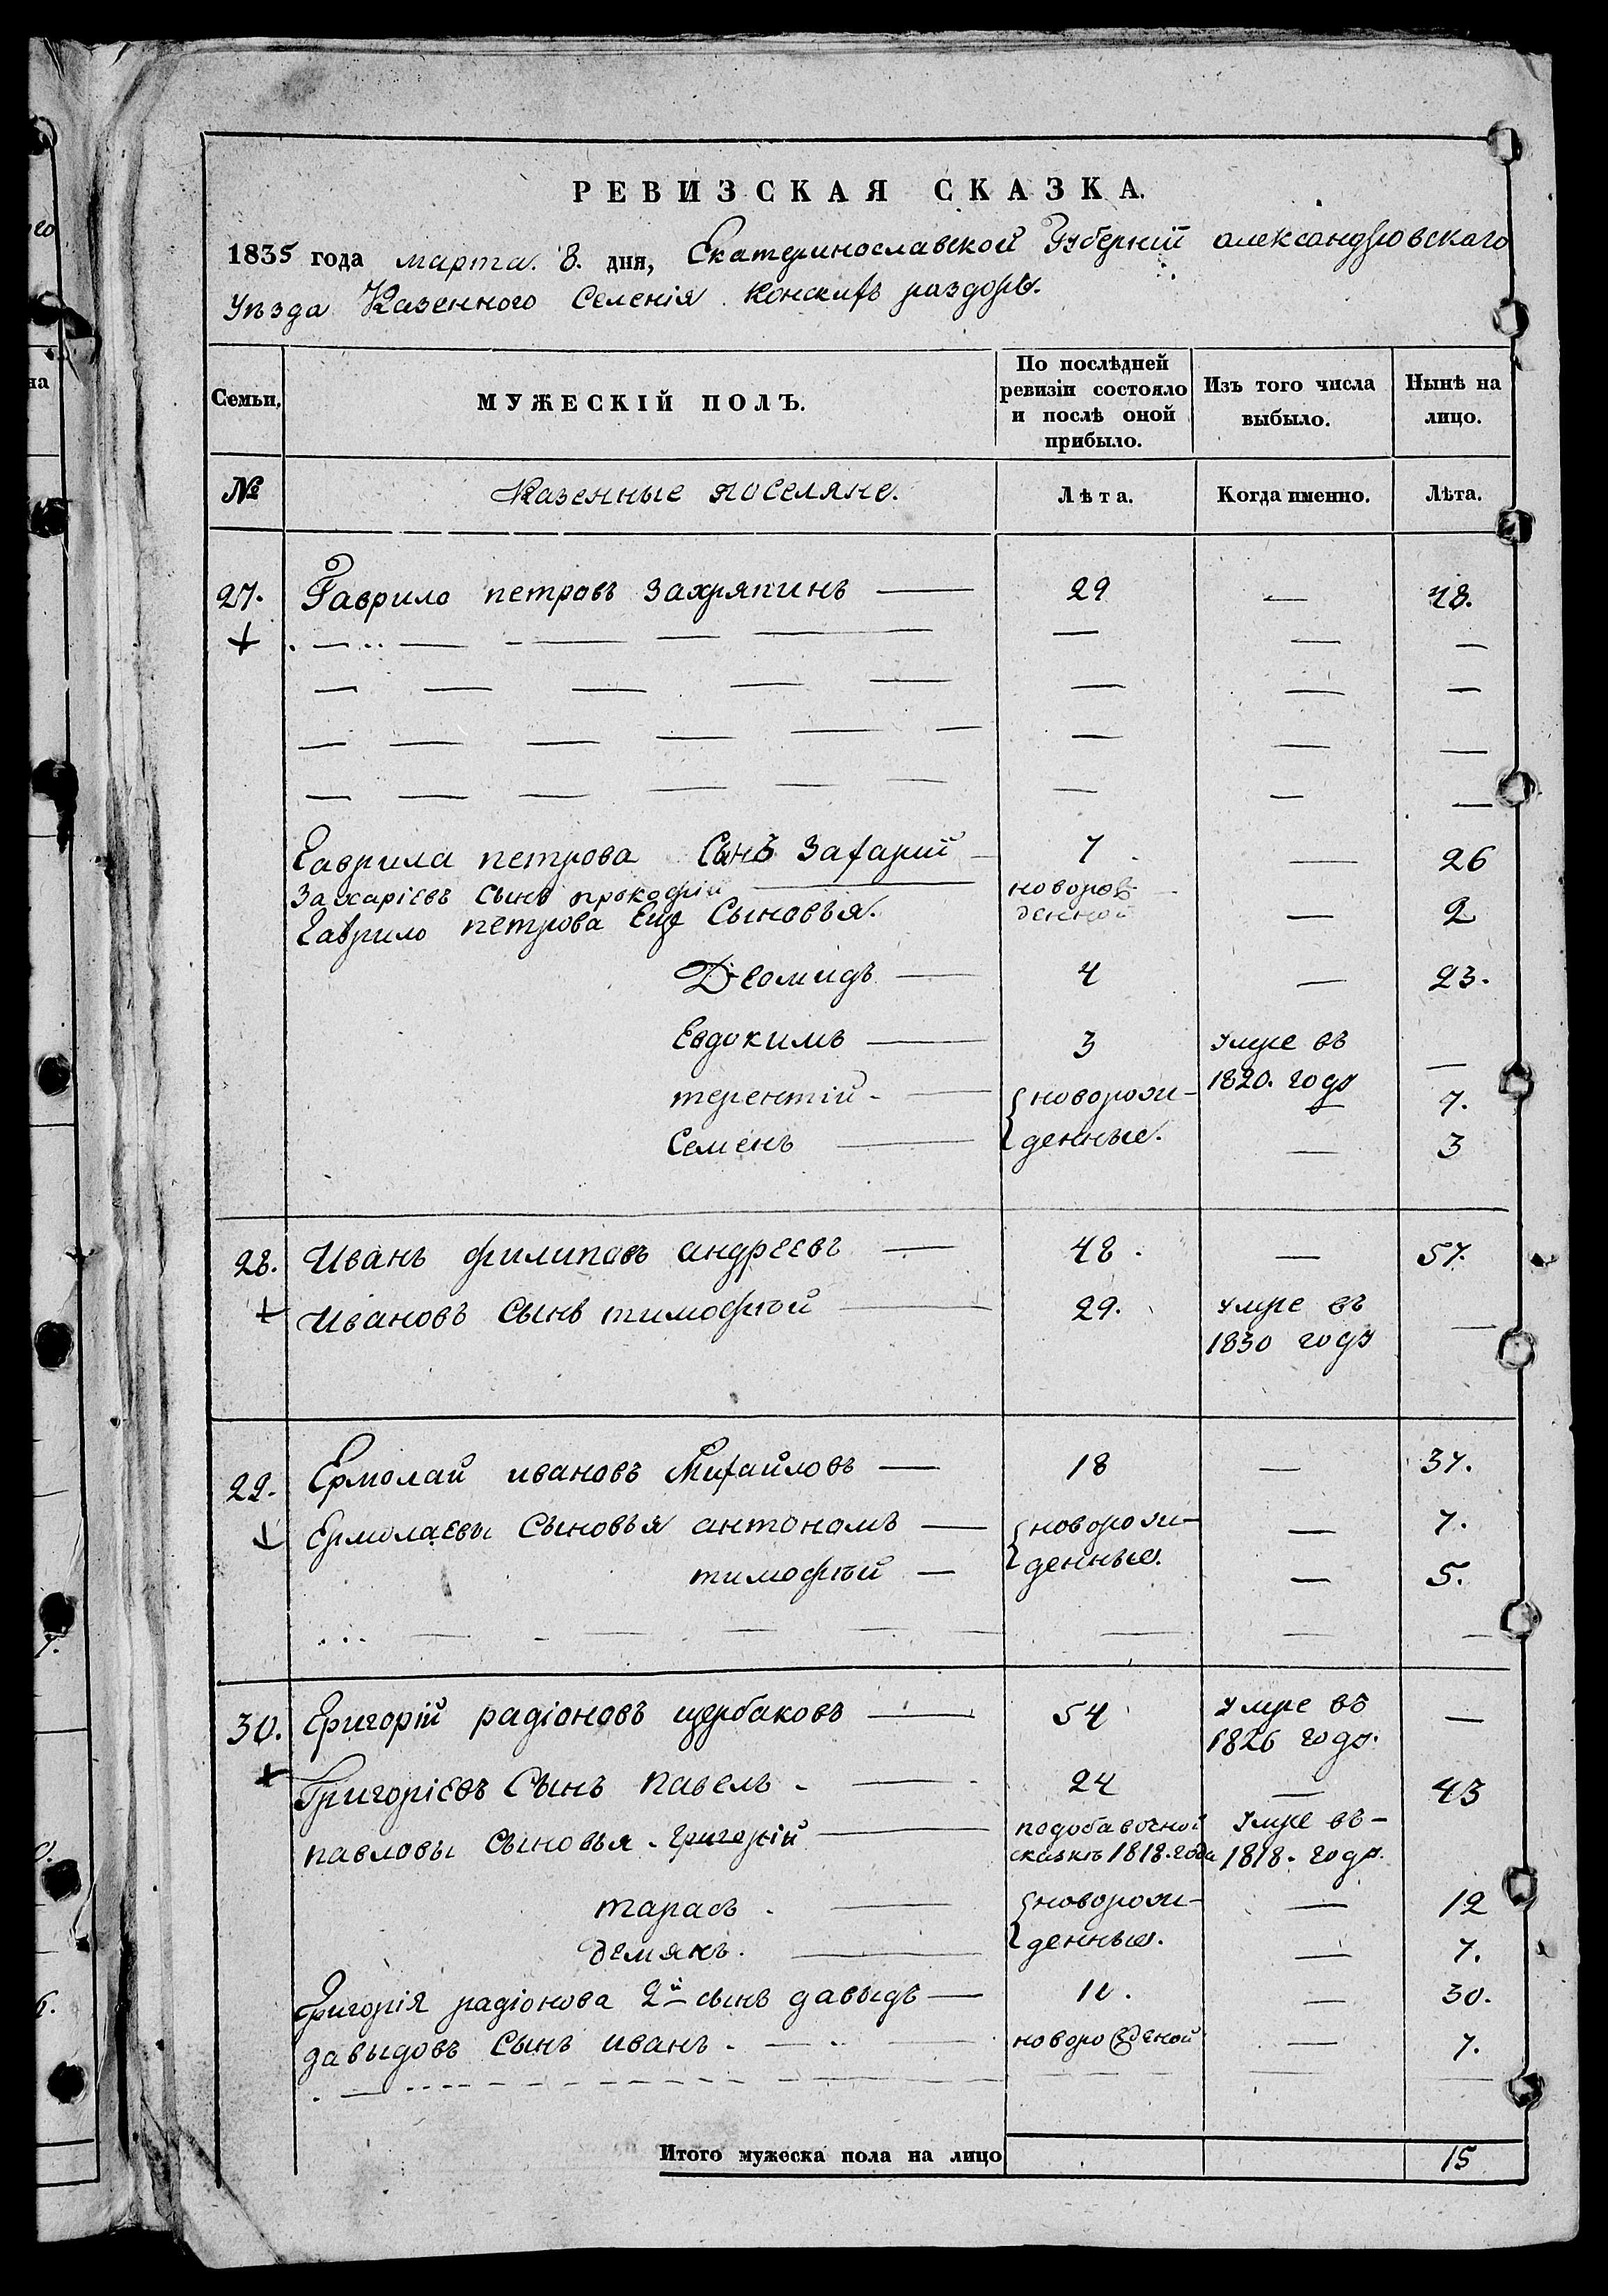 РЕВИЗСКАЯ СКАЗКА.
1835 года марта. 8. дня, Екатеринославской Губерніи александровскаго
Уѣзда Казенного Селенія Конскихъ раздоръ.
Семьи, МУЖЕСКІЙ ПОЛЪ. По послѣдней ревизіи состояло и послѣ оной прибыло. Изъ того числа выбыло. Нынѣ на лицо.
№ Казенные поселяне. Лѣта. Когда именно. Лѣта.
27. Гаврило петровъ Захряпинъ — 29 — 48.
Гаврила петрова Сынъ Захарий — 7 — 26
Захаріевъ Сынъ прокофій — новорож-
денной — 2
Гаврило петрова Еще Сыновья.
Деомидъ — 4 — 23.
Евдокимъ — 3 Умре въ
1820. году —
терентій — новорож- — 7.
Семенъ — денные. — 3
28. Иванъ филиповъ андреевъ — 48. — 57.
Ивановъ Сынъ тимофѣй — 29. Умре въ
1830 году —
29. Ермолай ивановъ Михайловъ — 18 — 37.
Ермолаевы Сыновья антономъ — новорож- — 7.
тимофѣй — денные. — 5.
30. Григорій радіоновъ щербаковъ — 54 Умре въ
1826 году. —
Григоріевъ Сынъ павелъ — 24 — 43
павловы Сыновья григорій — подобавочной Умре въ —
сказкѣ 1818. года 1818. году.
тарасъ — новорож- — 12
демянъ. — денные. — 7.
Григорія радіонова 2й сынъ давыдъ — 11. — 30.
давыдовъ Сынъ иванъ. — новорожденой — 7.
Итого мужеска пола на лицо 15